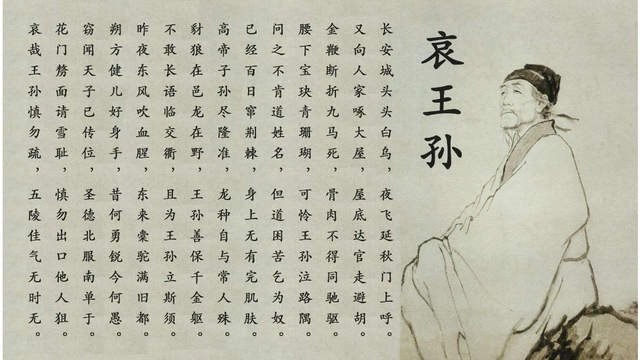 哀王孙
长安城头头白乌，夜飞延秋门上呼。
又向人家啄大屋，屋底达官走避胡。
金鞭断折九马死，骨肉不得同驰驱。
腰下宝玦青珊瑚，可怜王孙泣路隅。
问之不肯道姓名，但道困苦乞为奴。
已经百日窜荆棘，身上无有完肌肤。
高帝子孙尽隆准，龙种自与常人殊。
豺狼在邑龙在野，王孙善保千金躯。
不敢长语临交衢，且为王孙立斯须。
昨夜东风吹血腥，东来橐驼满旧都。
朔方健儿好身手，昔何勇锐今何愚。
窃闻天子已传位，圣德北服南单于。
花门剺面请雪耻，慎勿出口他人狙。
哀哉王孙慎勿疏，五陵佳气无时无。